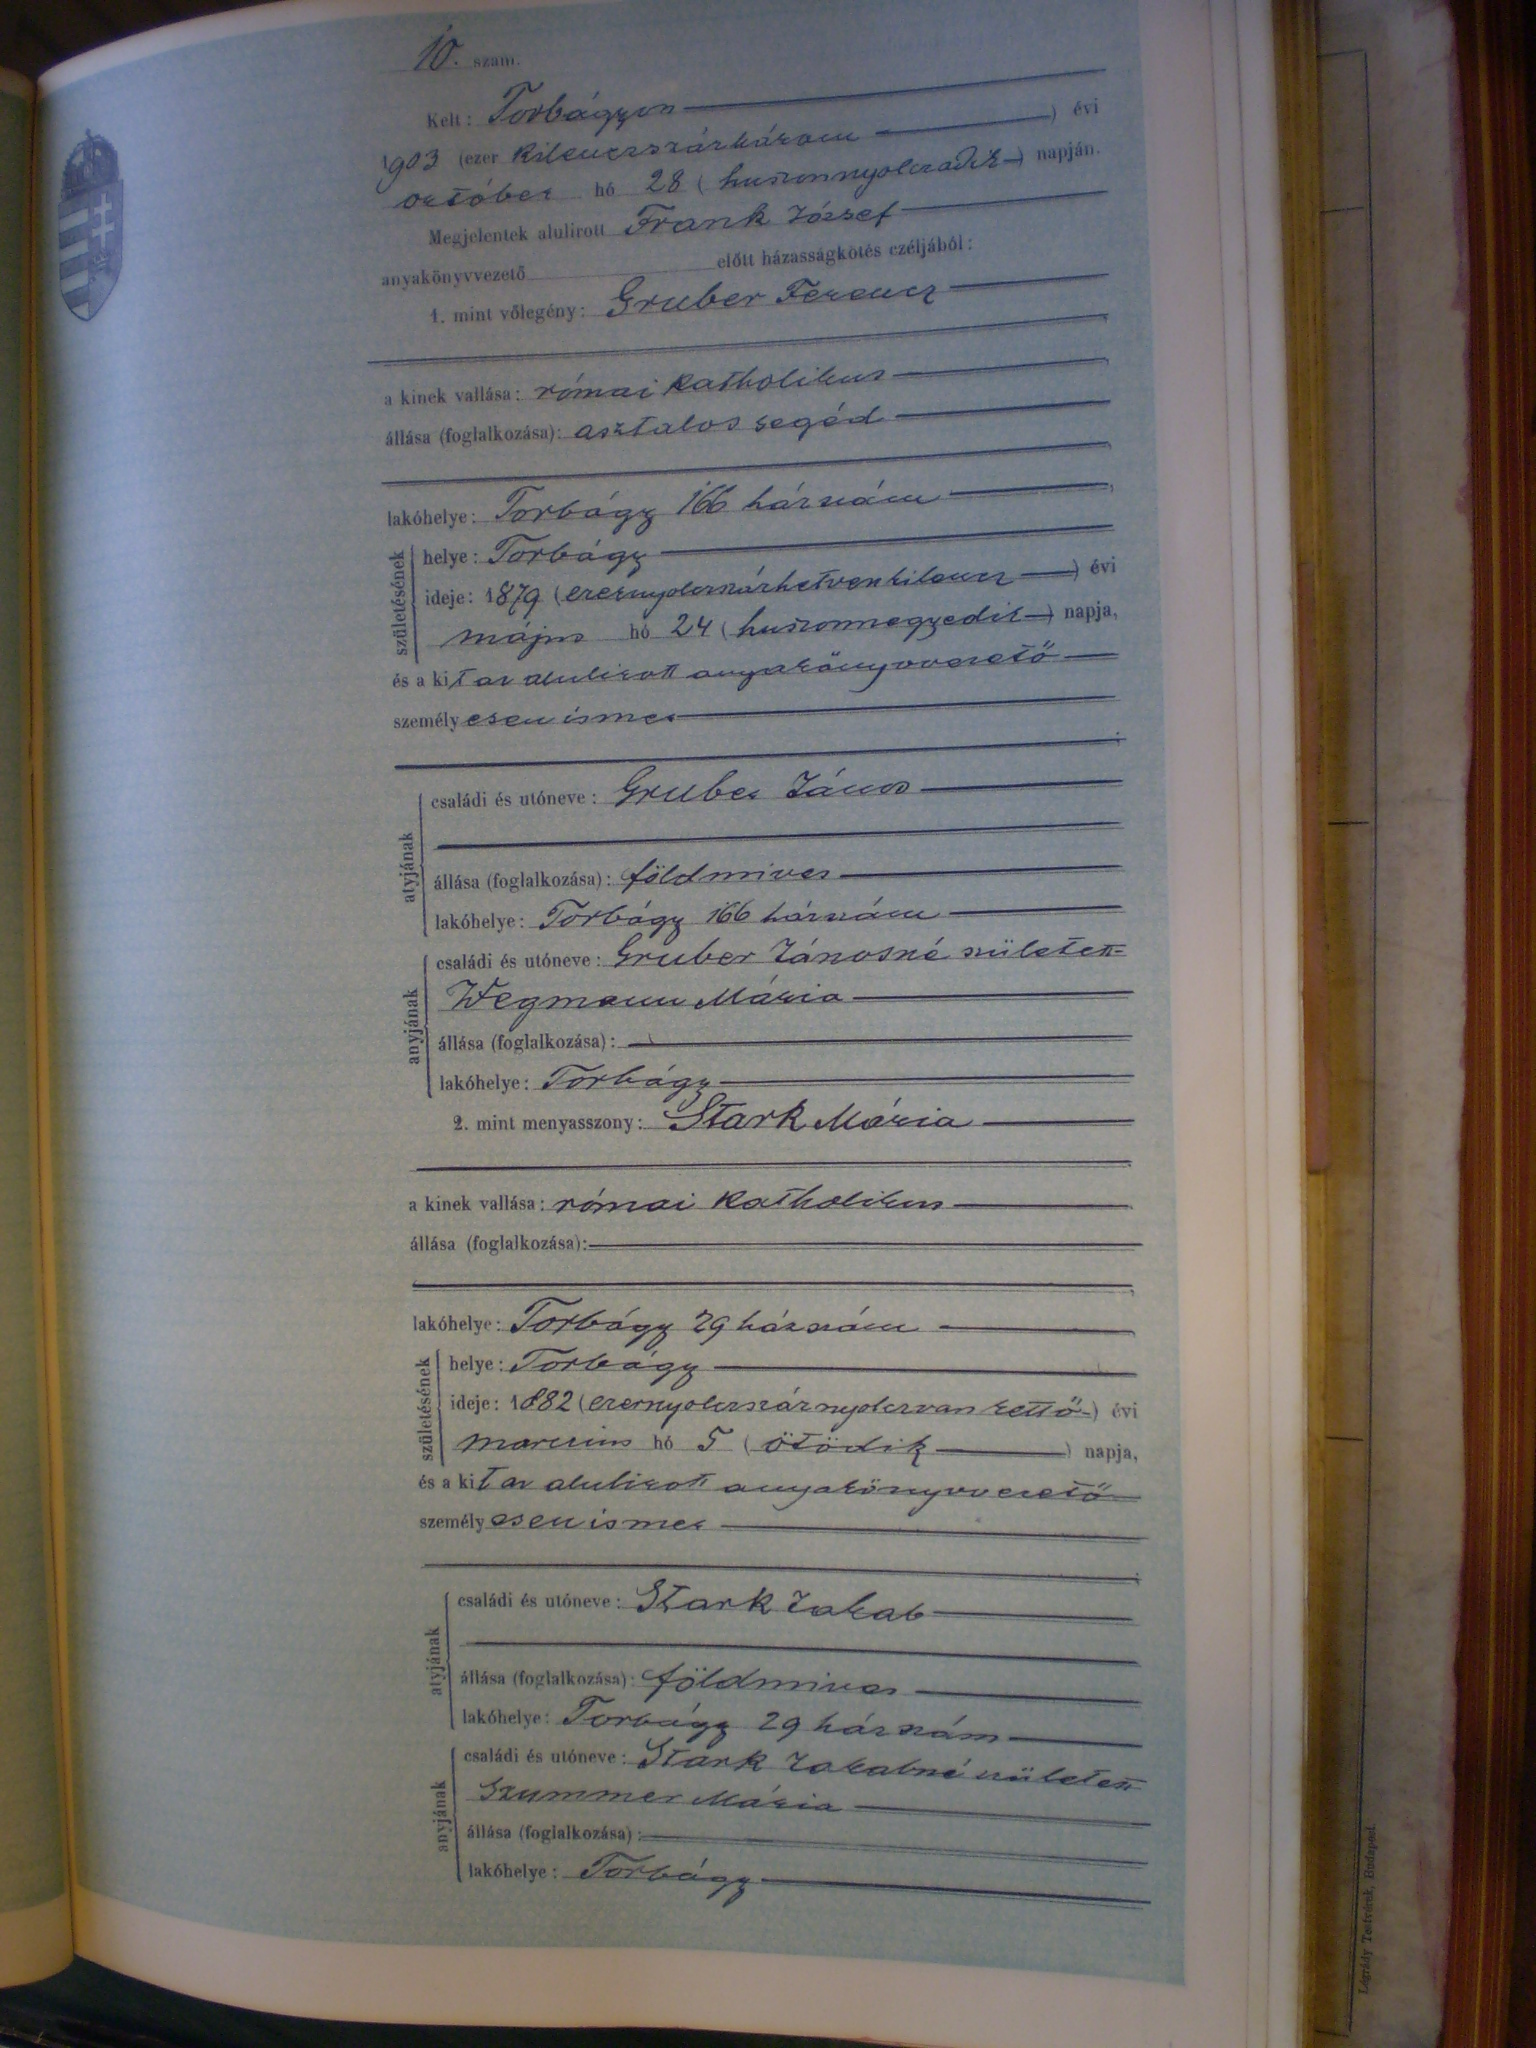 10. szám.
Kelt: Torbágyon
1903 (ezer kilenczszázhárom) évi
október hó 28 (huszonnyolczadik) napján.
Megjelentek alulírott Frank József
anyakönyvvezető előtt házasságkötés czéljából:
1. mint vőlegény: Gruber Ferencz
a kinek vallása: római katholikus
állása (foglalkozása): asztalos segéd
lakóhelye: Torbágy 166 házszám
születésének
helye: Torbágy
ideje: 1879 (ezernyolczszázhetvenkilencz) évi
május hó 24 (huszonnegyedik) napja,
és a kit az alulirott anyakönyvvezető
személyesen ismer
atyjának
családi és utóneve: Gruber János
állása (foglalkozása): földmives
lakóhelye: Torbágy 166 házszám
anyjának
családi és utóneve: Gruber Jánosné született
Wegmann Mária
állása (foglalkozása):
lakóhelye: Torbágy
2. mint menyasszony: Stark Mária
a kinek vallása: római katholikus
állása (foglalkozása):
lakóhelye: Torbágy 29 házszám
születésének
helye: Torbágy
ideje: 1882 (ezernyolczszáznyolczvankettő) évi
marczius hó 5 (ötödik) napja,
és a kit az alulirott anyakönyvvezető
személyesen ismer
atyjának
családi és utóneve: Stark Jakab
állása (foglalkozása): földmives
lakóhelye: Torbágy 29 házszám
anyjának
családi és utóneve: Stark Jakabné született
Szummer Mária
állása (foglalkozása):
lakóhelye: Torbágy
Légrády Testvérek, Budapest